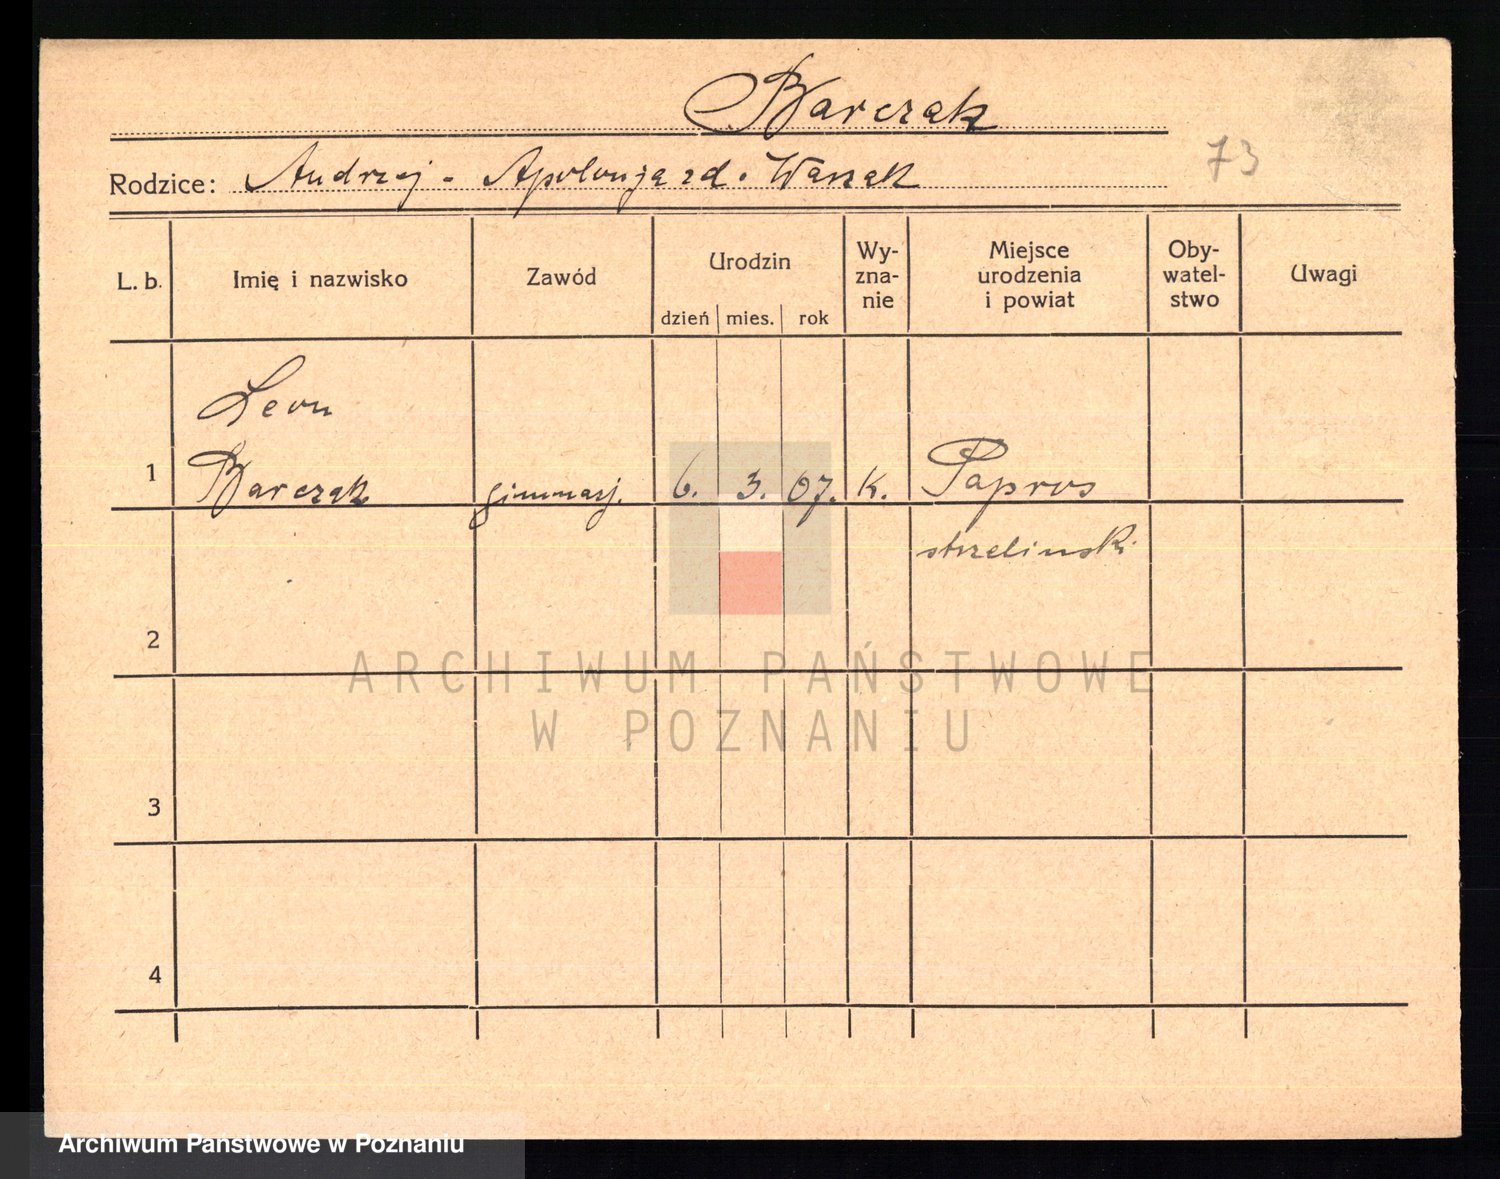 Barczak
73
Rodzice: Andrzej - Apolonja zd. Waszak
L. b.
Imię i nazwisko
Zawód
Urodzin
dzień mies. rok
Wy-
zna-
nie
Miejsce
urodzenia
i powiat
Oby-
watel-
stwo
Uwagi
Leon
1 Barczak gimnazj. 6. 3. 07. K. Papros
strzelinski
2
3
4
ARCHIWUM PAŃSTWOWE
W POZNANIU
Archiwum Państwowe w Poznaniu